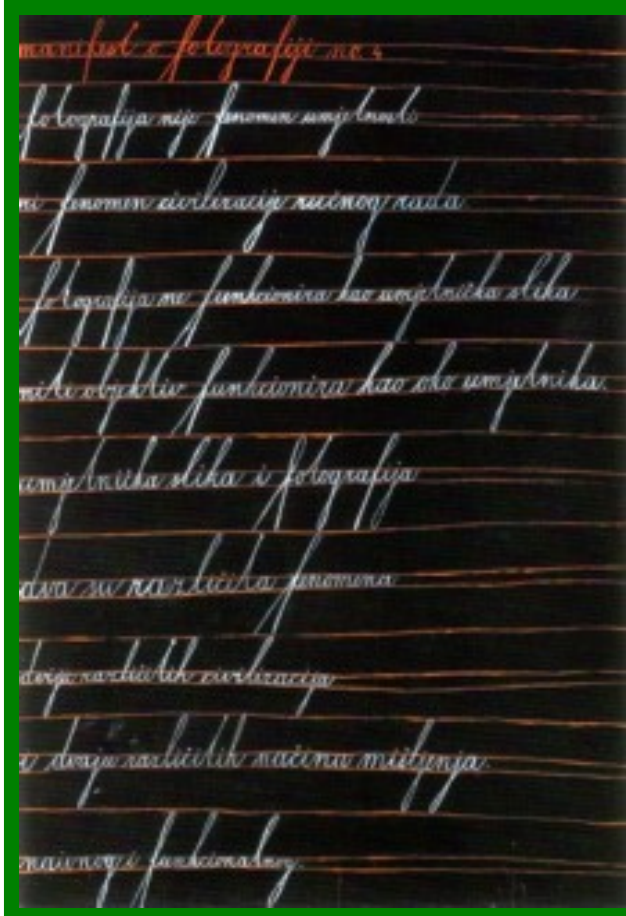 manifest o fotografiji no 4
fotografija nije fenomen umjetnosti
ni fenomen civilizacije ručnog rada
fotografija ne funkcionira kao umjetnička slika
niti objektiv funkcionira kao oko umjetnika.
umjetnička slika i fotografija
dva su različita fenomena
dvije različitih civilizacija
i dvaju različitih načina mišljenja.
naivnog i funkcionalnog.